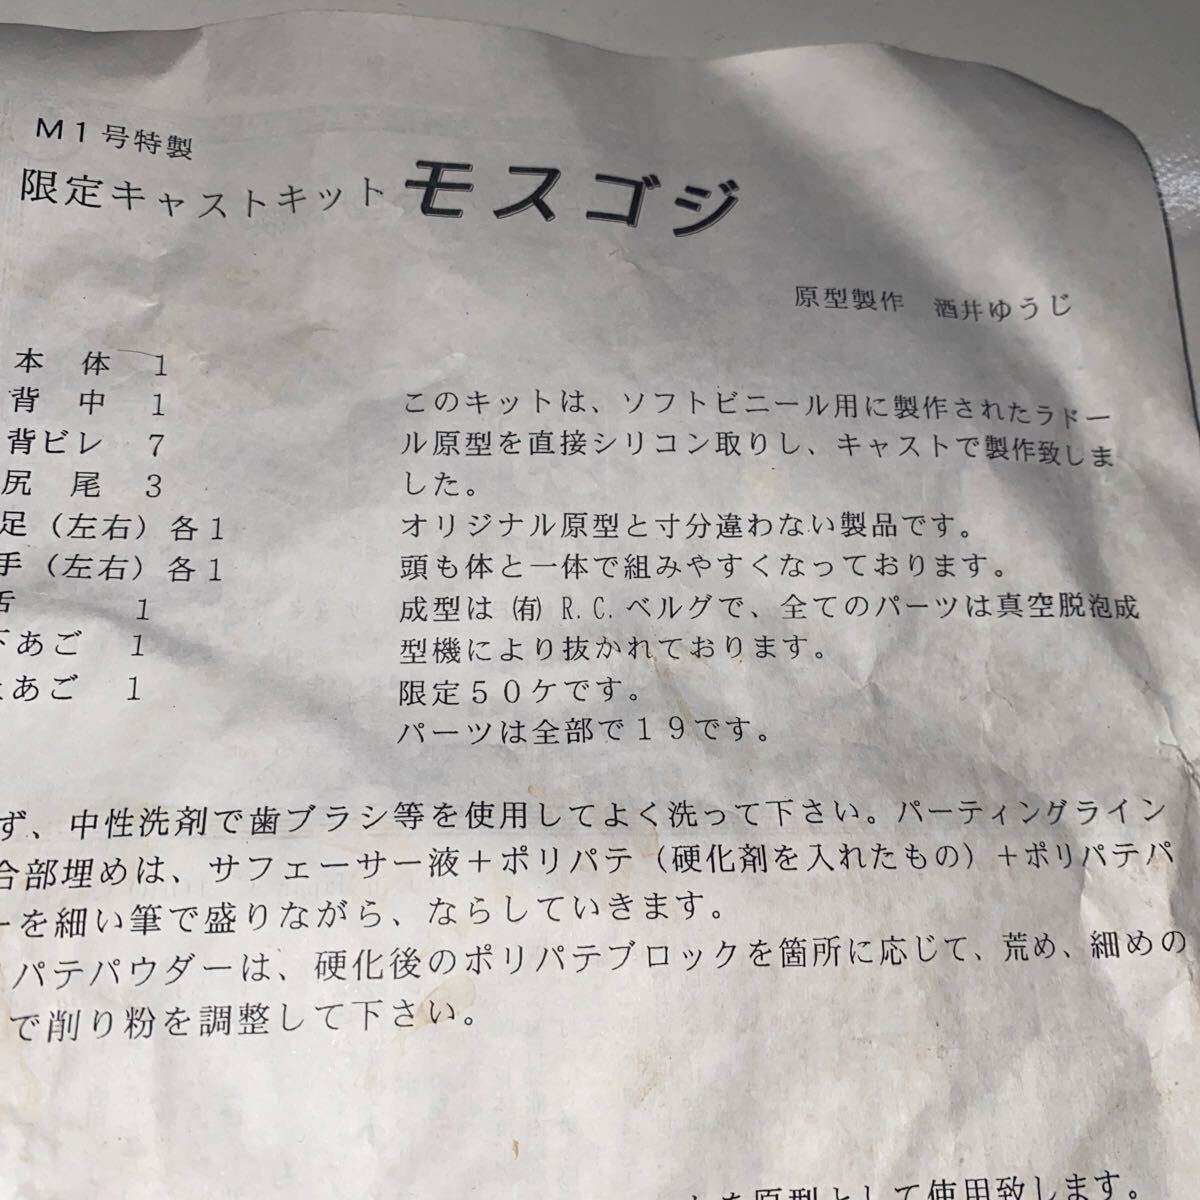 M1号特製
限定キャストキット モスゴジ
原型製作 酒井ゆうじ
本体 1
背中 1
背ビレ 7
尻尾 3
足(左右)各1
手(左右)各1
舌 1
下あご 1
あご 1
このキットは、ソフトビニール用に製作されたラドー
ル原型を直接シリコン取りし、キャストで製作致しま
した。
オリジナル原型と寸分違わない製品です。
頭も体と一体で組みやすくなっております。
成型は㈲R.C.ベルグで、全てのパーツは真空脱泡成
型機により抜かれております。
限定50ケです。
パーツは全部で19です。
ず、中性洗剤で歯ブラシ等を使用してよく洗って下さい。パーティングライン
合部埋めは、サフェーサー液+ポリパテ(硬化剤を入れたもの)+ポリパテパ
ーを細い筆で盛りながら、ならしていきます。
パテパウダーは、硬化後のポリパテブロックを箇所に応じて、荒め、細めの
で削り粉を調整して下さい。
を原型として使用致します。